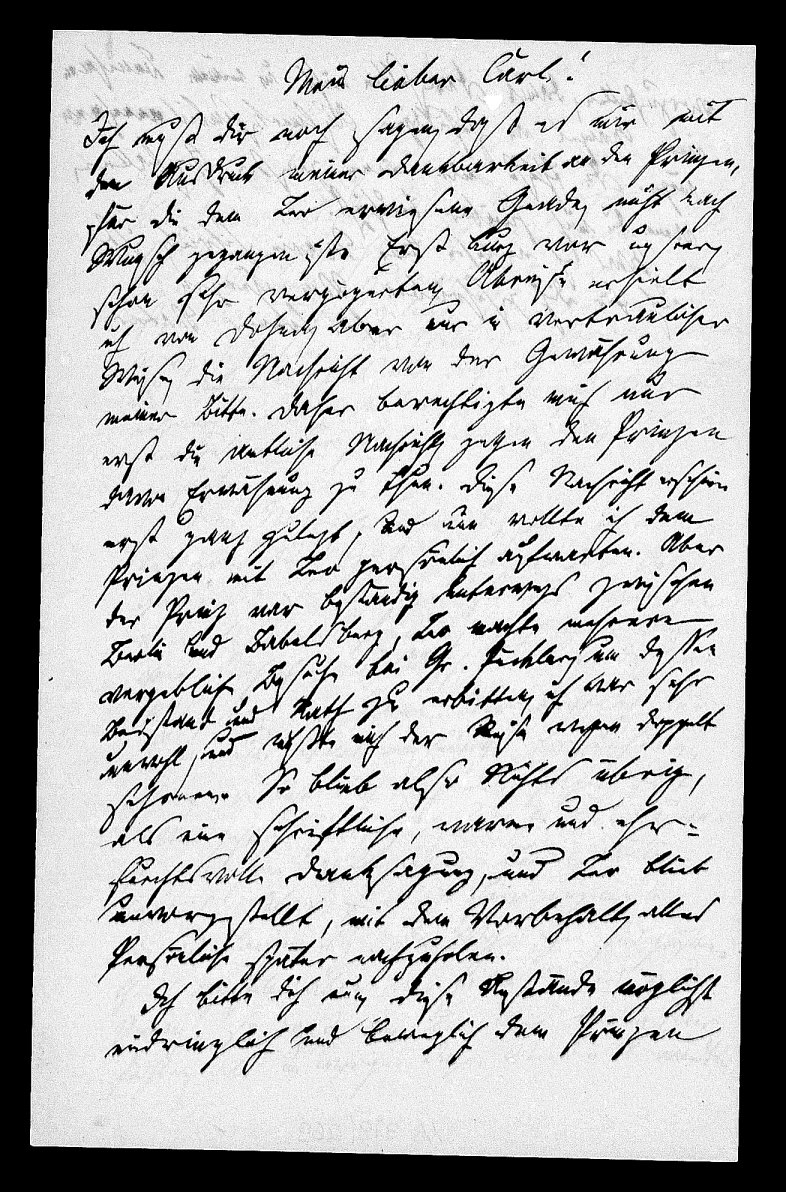 Mein lieber Carl!
Ich muß dir noch sagen, daß es mir mit
dem Ausdruck meiner Dankbarkeit an den Prinzen,
für die dem Leo erwiesene Gnade, nicht nach
Wunsch gegangen ist. Erst kurz vor unserer
schon sehr verzögerten Abreise erhielt
ich von Dohna, aber nur in vertraulicher
Weise, die Nachricht von der Gewährung
meiner Bitte. Daher berechtigte mich nur
erst die amtliche Nachricht, gegen den Prinzen
davon Erwähnung zu thun. Diese Nachricht erschien
erst ganz zuletzt, und nun wollte ich dem
Prinzen mit Leo persönlich aufwarten. Aber
der Prinz war beständig unterwegs zwischen
Berlin und Babelsberg, Leo machte mehrere
vergebliche Besuche bei Gr. Pückler, um dessen
Beistand und Rath zu erbitten, ich war sehr
unwohl, und mußte mich der Reise wegen doppelt
schonen. So blieb also Nichts übrig,
als eine schriftliche, warme und ehr=
furchtsvolle Danksagung, und Leo blieb
unvorgestellt, mit dem Vorbehalt, alles
Persönliche später nachzuholen.
Ich bitte dich nun, diese Umstände möglichst
eindringlich und beweglich dem Prinzen